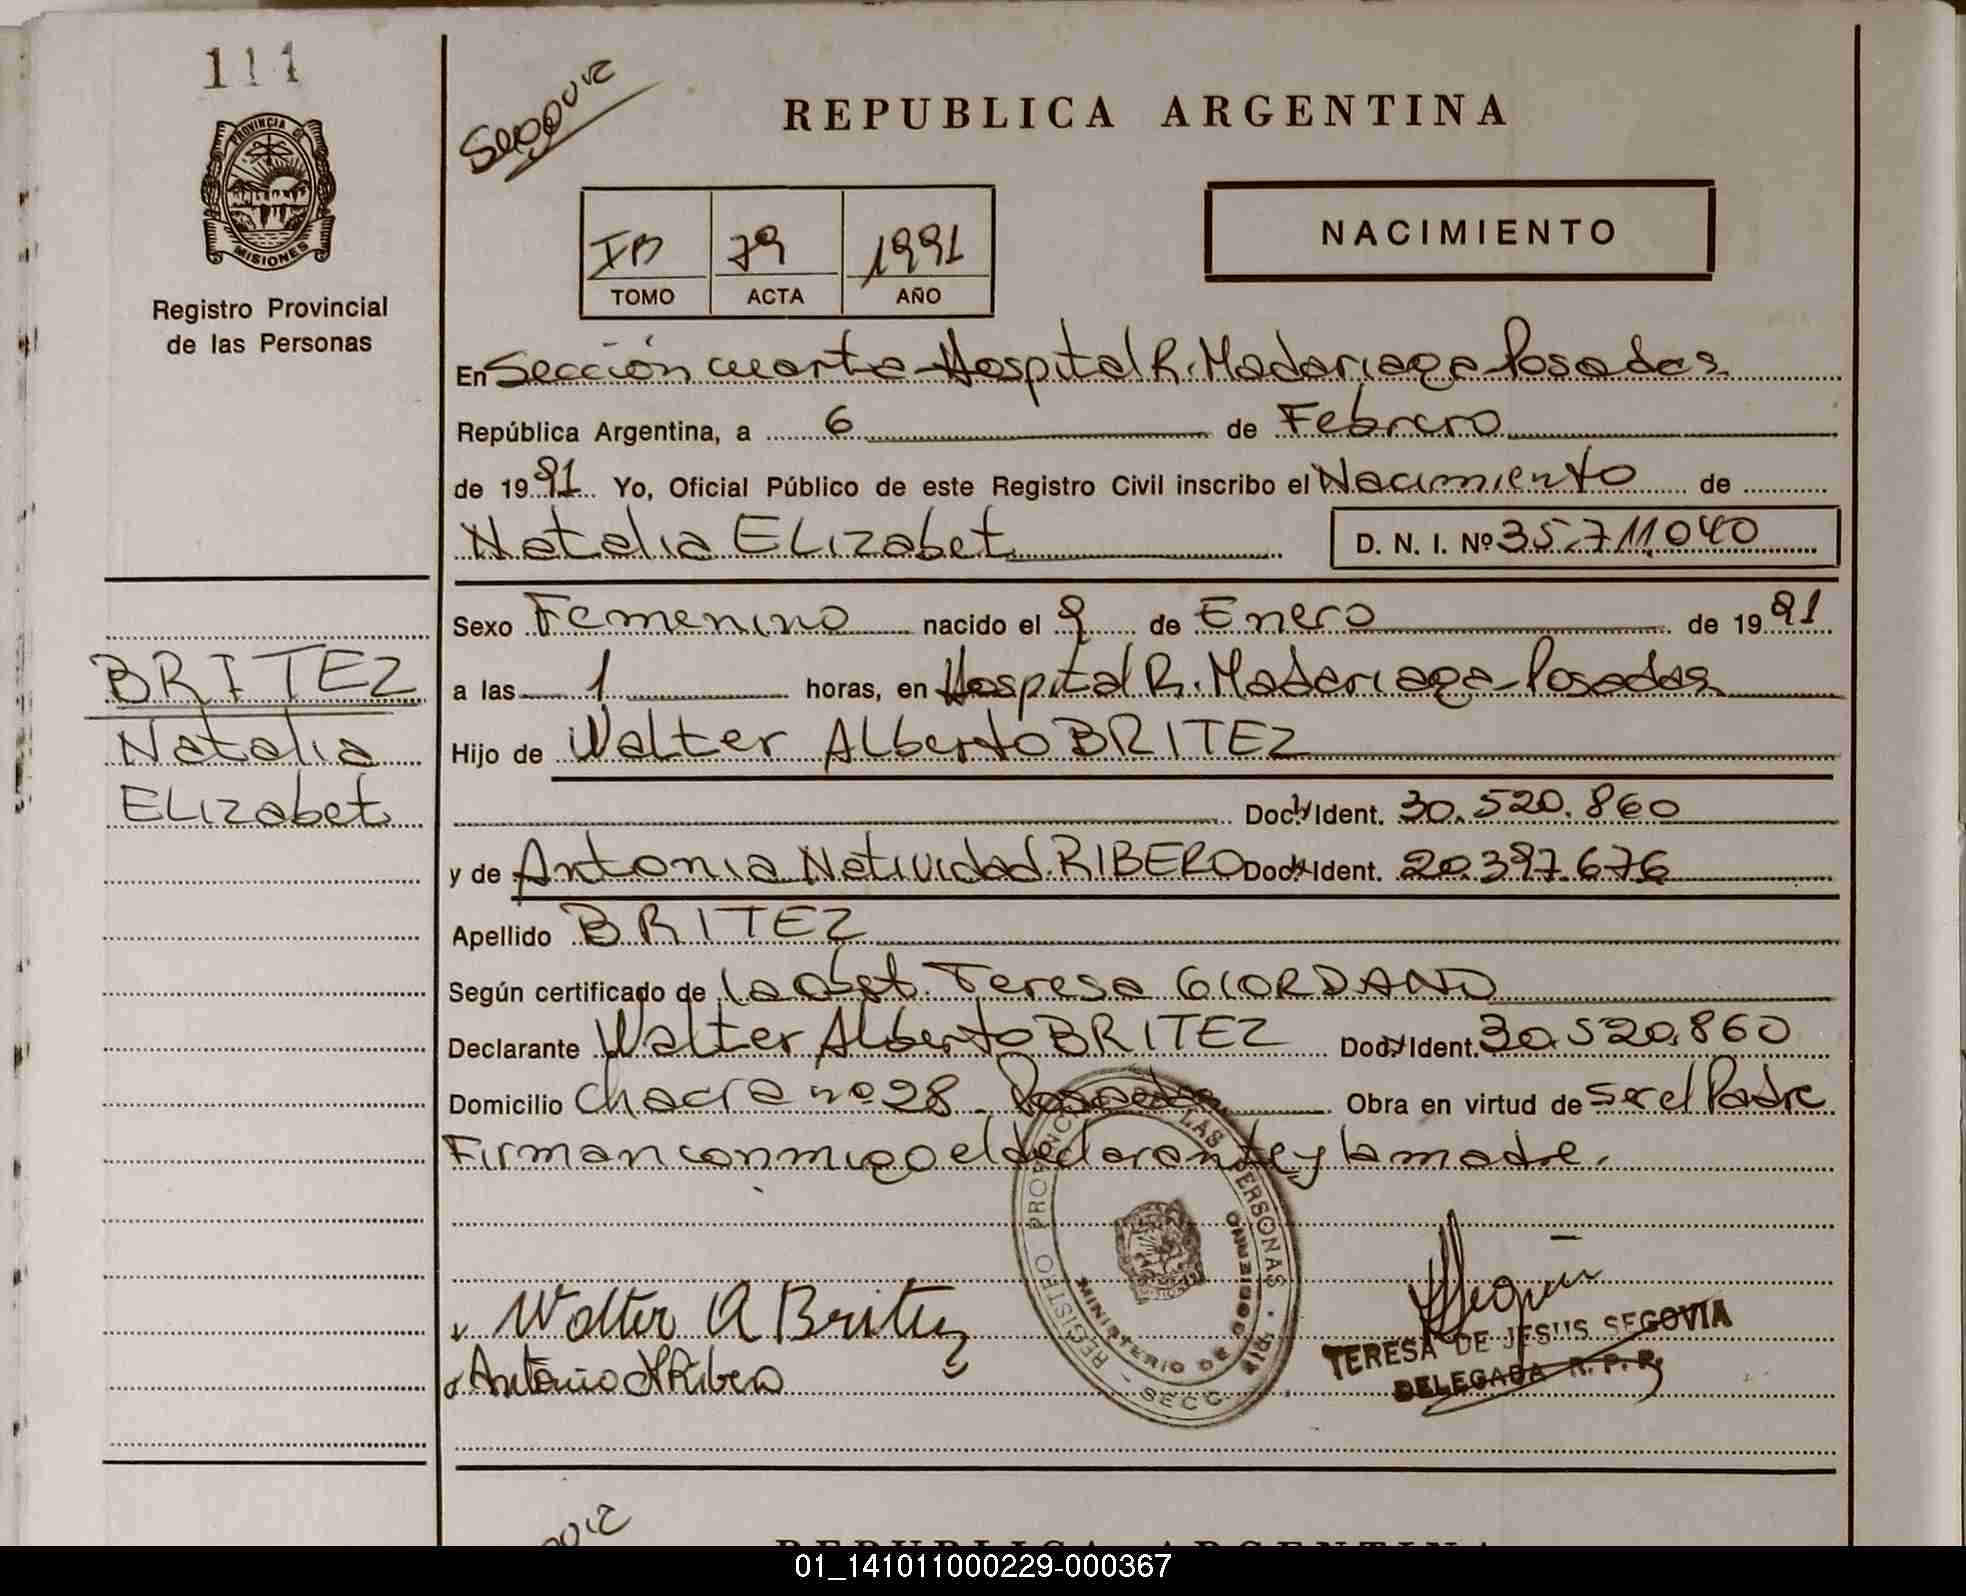 111
PROVINCIA DE
MISIONES
Registro Provincial
de las Personas
BRITEZ
Natalia
ELizabet
REPUBLICA ARGENTINA
IB 79 1991
TOMO ACTA AÑO
NACIMIENTO
En Sección cuarta Hospital R. Madariaga Posadas
República Argentina, a 6 de Febrero
de 1991 Yo, Oficial Público de este Registro Civil inscribo el Nacimiento de
Natalia ELizabet D. N. I. Nº 35.711.040
Sexo Femenino nacido el 9 de Enero de 1991
a las 1 horas, en Hospital R. Madariaga-Posadas
Hijo de Walter ALberto BRITEZ
Doc. Ident. 30.520.860
y de Antonia Natividad RIBERO Doc. Ident. 20.397.676
Apellido BRITEZ
Según certificado de la obst. Teresa GIORDANO
Declarante Walter Alberto BRITEZ Doc. Ident. 30.520.860
Domicilio Chacra nº 28 - Posadas Obra en virtud de ser el Padre
Firman conmigo el declarante y la madre.
REGISTRO PROVINCIAL LAS PERSONAS
MINISTERIO DE GOBIERNO
SECC.
Walter A Britez
Antonia N Ribero
TERESA DE JESUS SEGOVIA
DELEGADA R. P. P.
REPUBLICA ARGENTINA
01_141011000229-000367